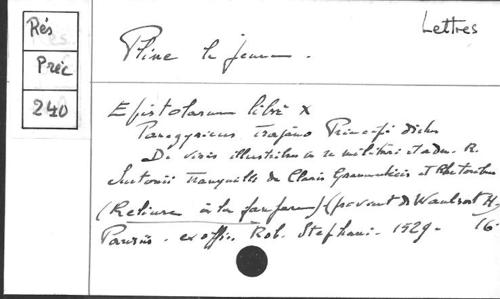 Rés
Préc
240
Lettres
Pline le jeune.
Epistolarum libri X
Panegyricus Trajano Principi dictus
De viris illustribus in re militari et adm. R.
Suetonii Tranquilli de Claris Grammaticis et Rhetoribus
(Reliure à la fanfare) (provient de
Parisiis - ex offic. Rob. Stephani - 1529 - 16°